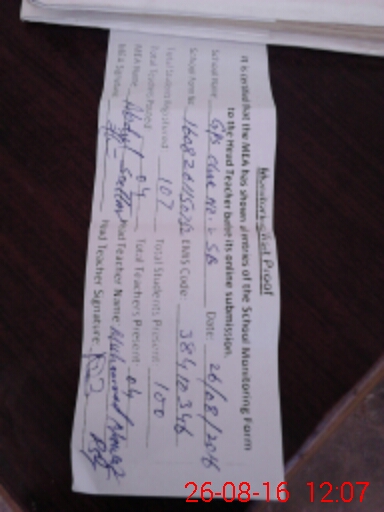 Monitoring Visit Proof
It is certified that the MEA has shown all entries of the School Monitoring Form
to the Head Teacher before its online submission.
School Name: GPS Chak No. SB Date: 26/08/2016
School Form No: EMIS Code: 38410346
Total Student Registered: 107 Total Students Present: 100
Total Teachers Posted: 04 Total Teachers Present: 04
MEA Name: Abdul Head Teacher Name: Muhammad Nawaz
MEA Signature: Head Teacher Signature:
26-08-16 12:07